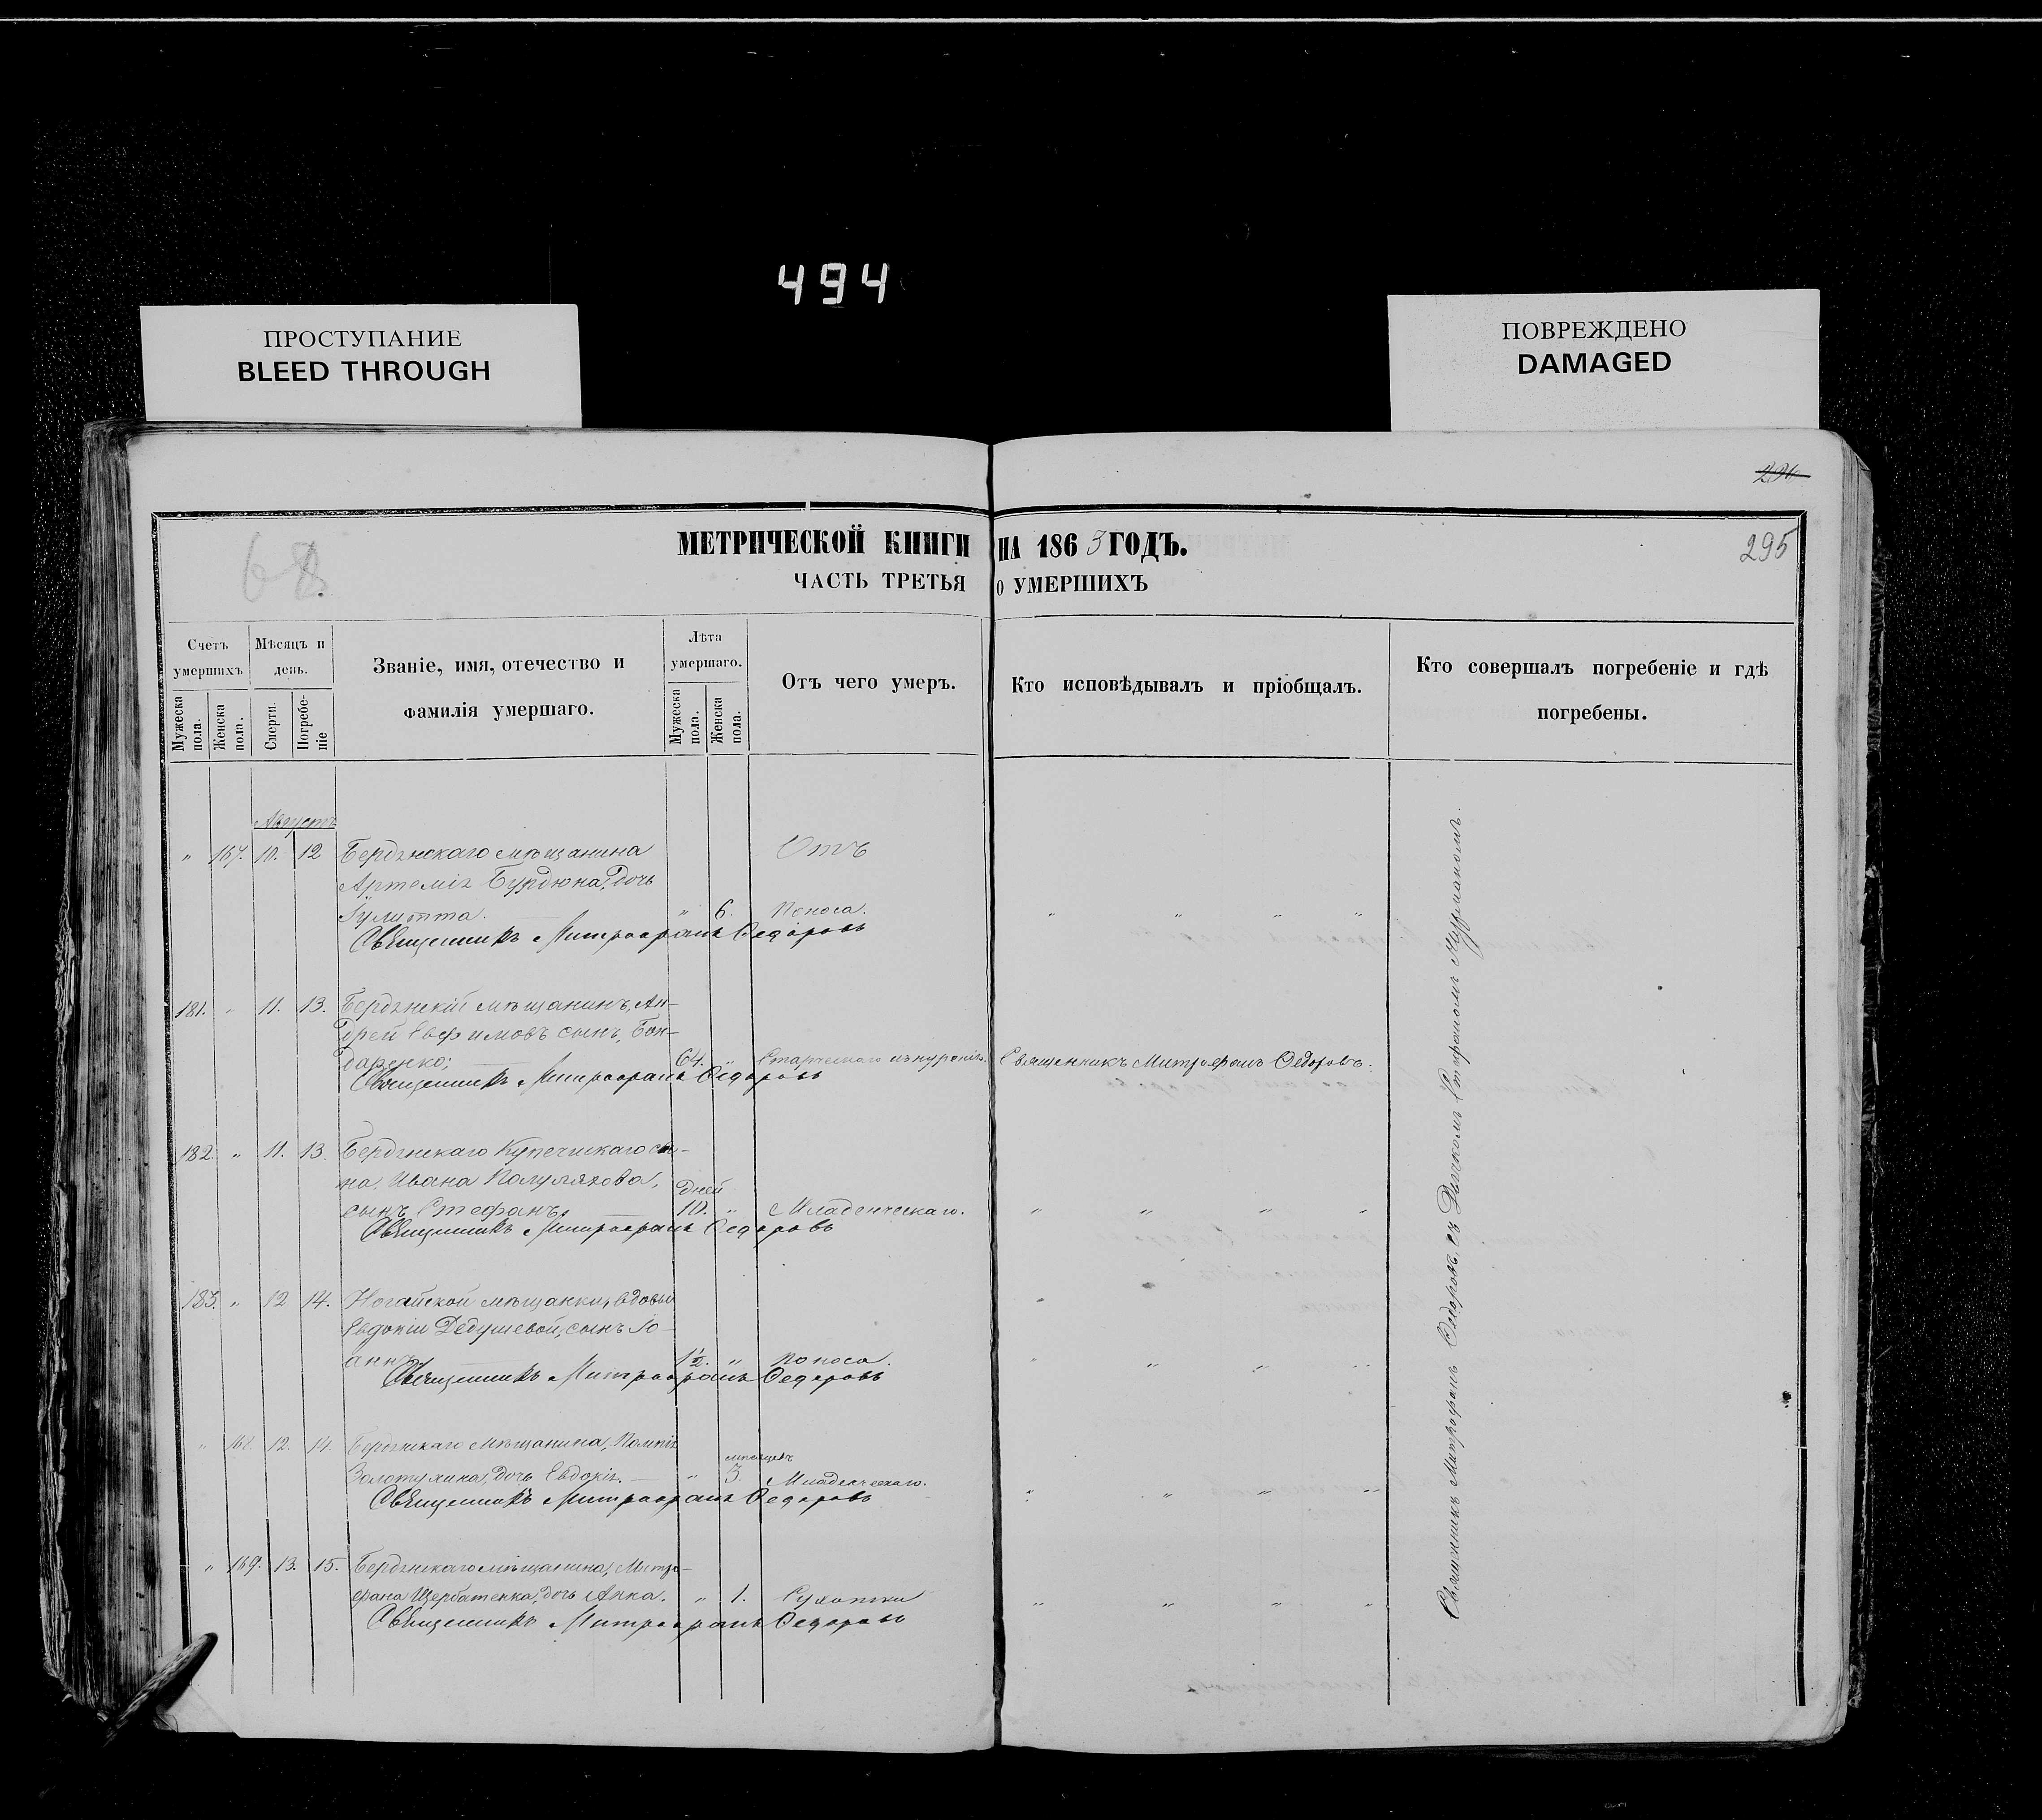 494
ПРОСТУПАНИЕ
BLEED THROUGH
ПОВРЕЖДЕНО
DAMAGED
68.
МЕТРИЧЕСКОЙ КНИГИ НА 1863 ГОДЪ.
295
ЧАСТЬ ТРЕТЬЯ О УМЕРШИХЪ
Счетъ умершихъ
Мужеска пола.
Женска пола.
Мѣсяцъ и день.
Смерти.
Погребеніе
Званіе, имя, отечество и фамилія умершаго.
Лѣта умершаго.
Мужеска пола.
Женска пола.
Отъ чего умеръ.
Кто исповѣдывалъ и пріобщалъ.
Кто совершалъ погребеніе и гдѣ погребены.
Августъ
" 167. 10. 12 Бердянскаго мѣщанина Отъ
Артемія Бурдюна, дочь
Іулитта. " 6. Поноса. " " " "
Священникъ Митрофанъ Федоровъ
181. " 11. 13. Бердянскій мѣщанинъ, Ан-
дрей Евфимовъ сынъ, Бон-
даренко; 64. " Старческаго изнуренія. Священникъ Митрофанъ Федоровъ.
Священникъ Митрофанъ Федоровъ
182. " 11. 13. Бердянскаго Купеческаго сы-
на, Ивана Полуляхова, дней
сынъ Стефанъ. 10. " Младенческаго. " " " "
Священникъ Митрофанъ Федоровъ
183. " 12 14. Ногайской мѣщанки, вдовы
Евдокіи Дедушевой, сынъ Іо-
аннъ. 1½. " Поноса. " " " "
Священникъ Митрофанъ Федоровъ
" 168. 12. 14. Бердянскаго мѣщанина, мѣсяцевъ
Золотухина, дочь Евдокія. " 3. Младенческаго. " " " "
Священникъ Митрофанъ Федоровъ
" 169. 13. 15. Бердянскаго мѣщанина, Митро-
фана Щербатенка, дочь Анна. " 1. Сухотки " " " "
Священникъ Митрофанъ Федоровъ
Священникъ Митрофанъ Федоровъ, съ Дьячкомъ